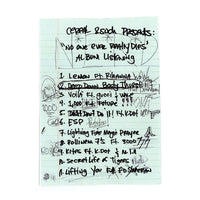 Presents:
'No One Ever Really Dies'
Album Listening
1. Lemon Ft. Rihanna
2. Deep Down Body Thurst
3. Voilà Ft. Gucci & Wale
4. 1,000 Ft. Future
5. Don't Do It! Ft. KDot
6. ESP
7. Lightning Fire Magic Prayer
8. Rollinem 7's Ft. 3000
9. Kites Ft. KDot & M.I.A
Secret Life of Tigers
Lifting You Ft. Ed Sheeran